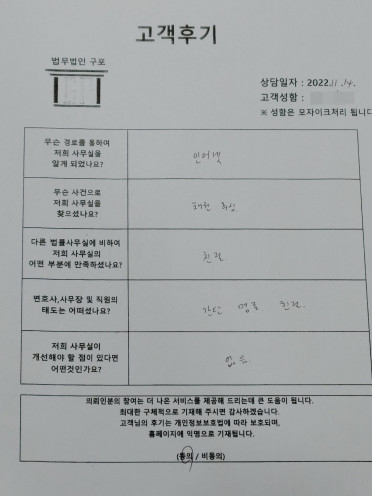 고객후기
법무법인 구포
상담일자 : 2022.11.14.
고객성함 :
※ 성함은 모자이크처리 됩니다
무슨 경로를 통하여
저희 사무실을
알게 되었나요?
인터넷
무슨 사건으로
저희 사무실을
찾으셨나요?
다른 법률사무실에 비하여
저희 사무실의
어떤 부분에 만족하셨나요?
친절
변호사,사무장 및 직원의
태도는 어떠셨나요?
간단 명료 친절
저희 사무실이
개선해야 할 점이 있다면
어떤것인가요?
없음
의뢰인분의 참여는 더 나은 서비스를 제공해 드리는데 큰 도움이 됩니다.
최대한 구체적으로 기재해 주시면 감사하겠습니다.
고객님의 후기는 개인정보보호법에 따라 보호되며,
홈페이지에 익명으로 기재됩니다.
(동의 / 비동의)